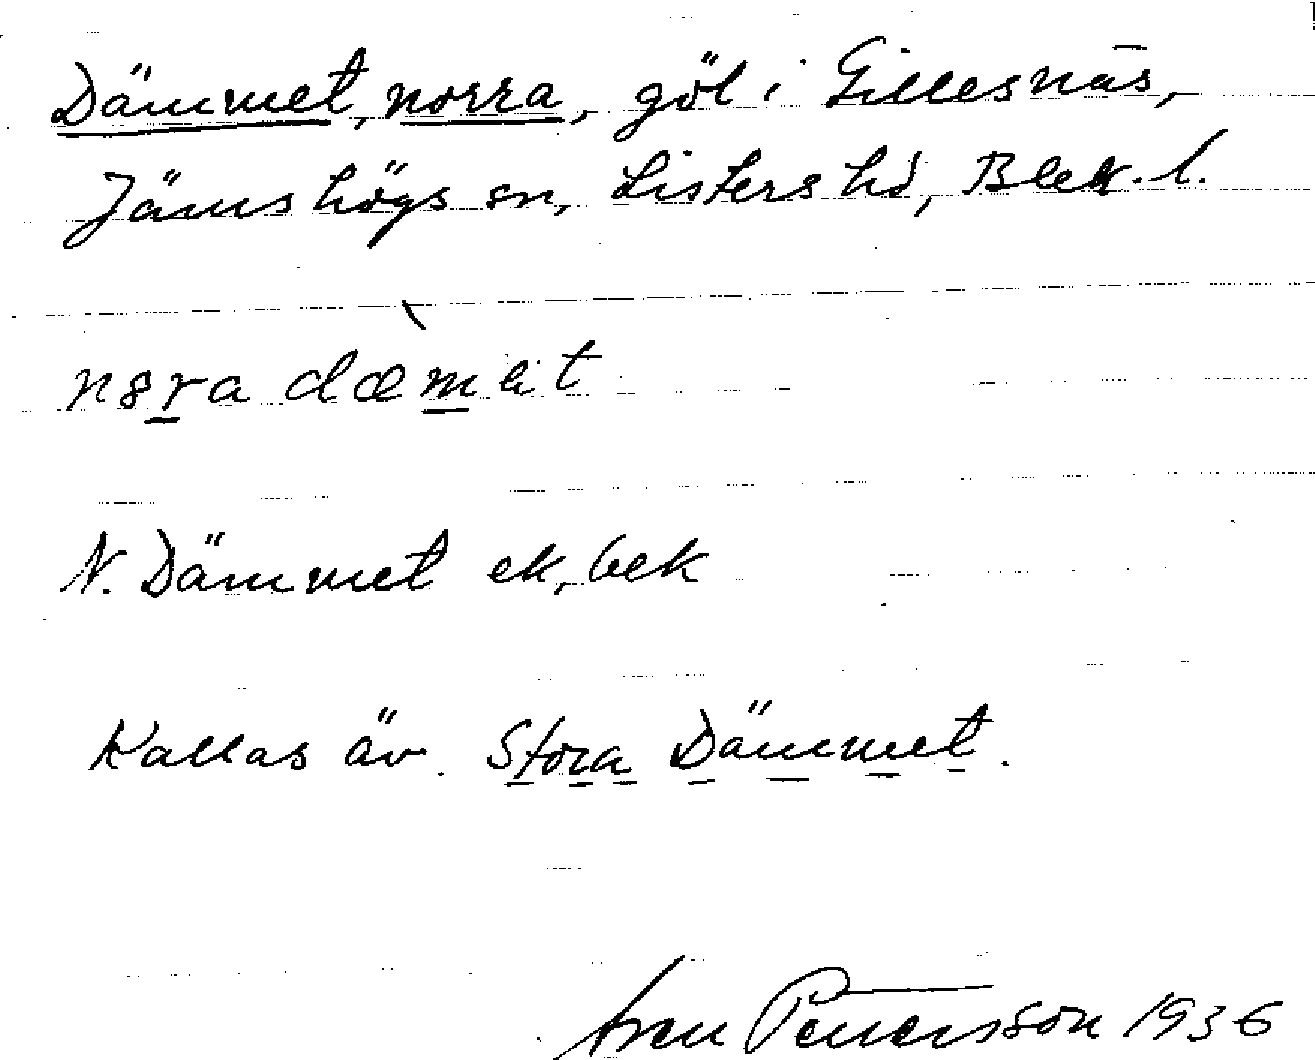 Dämmet, norra, göl i Gillesnäs,
Jämshögs sn, Listers hd, Blek. l.
nɞra dæ̀mət
N. Dämmet ek, bek
Kallas äv. Stora Dämmet.
Sven Petersson 1936